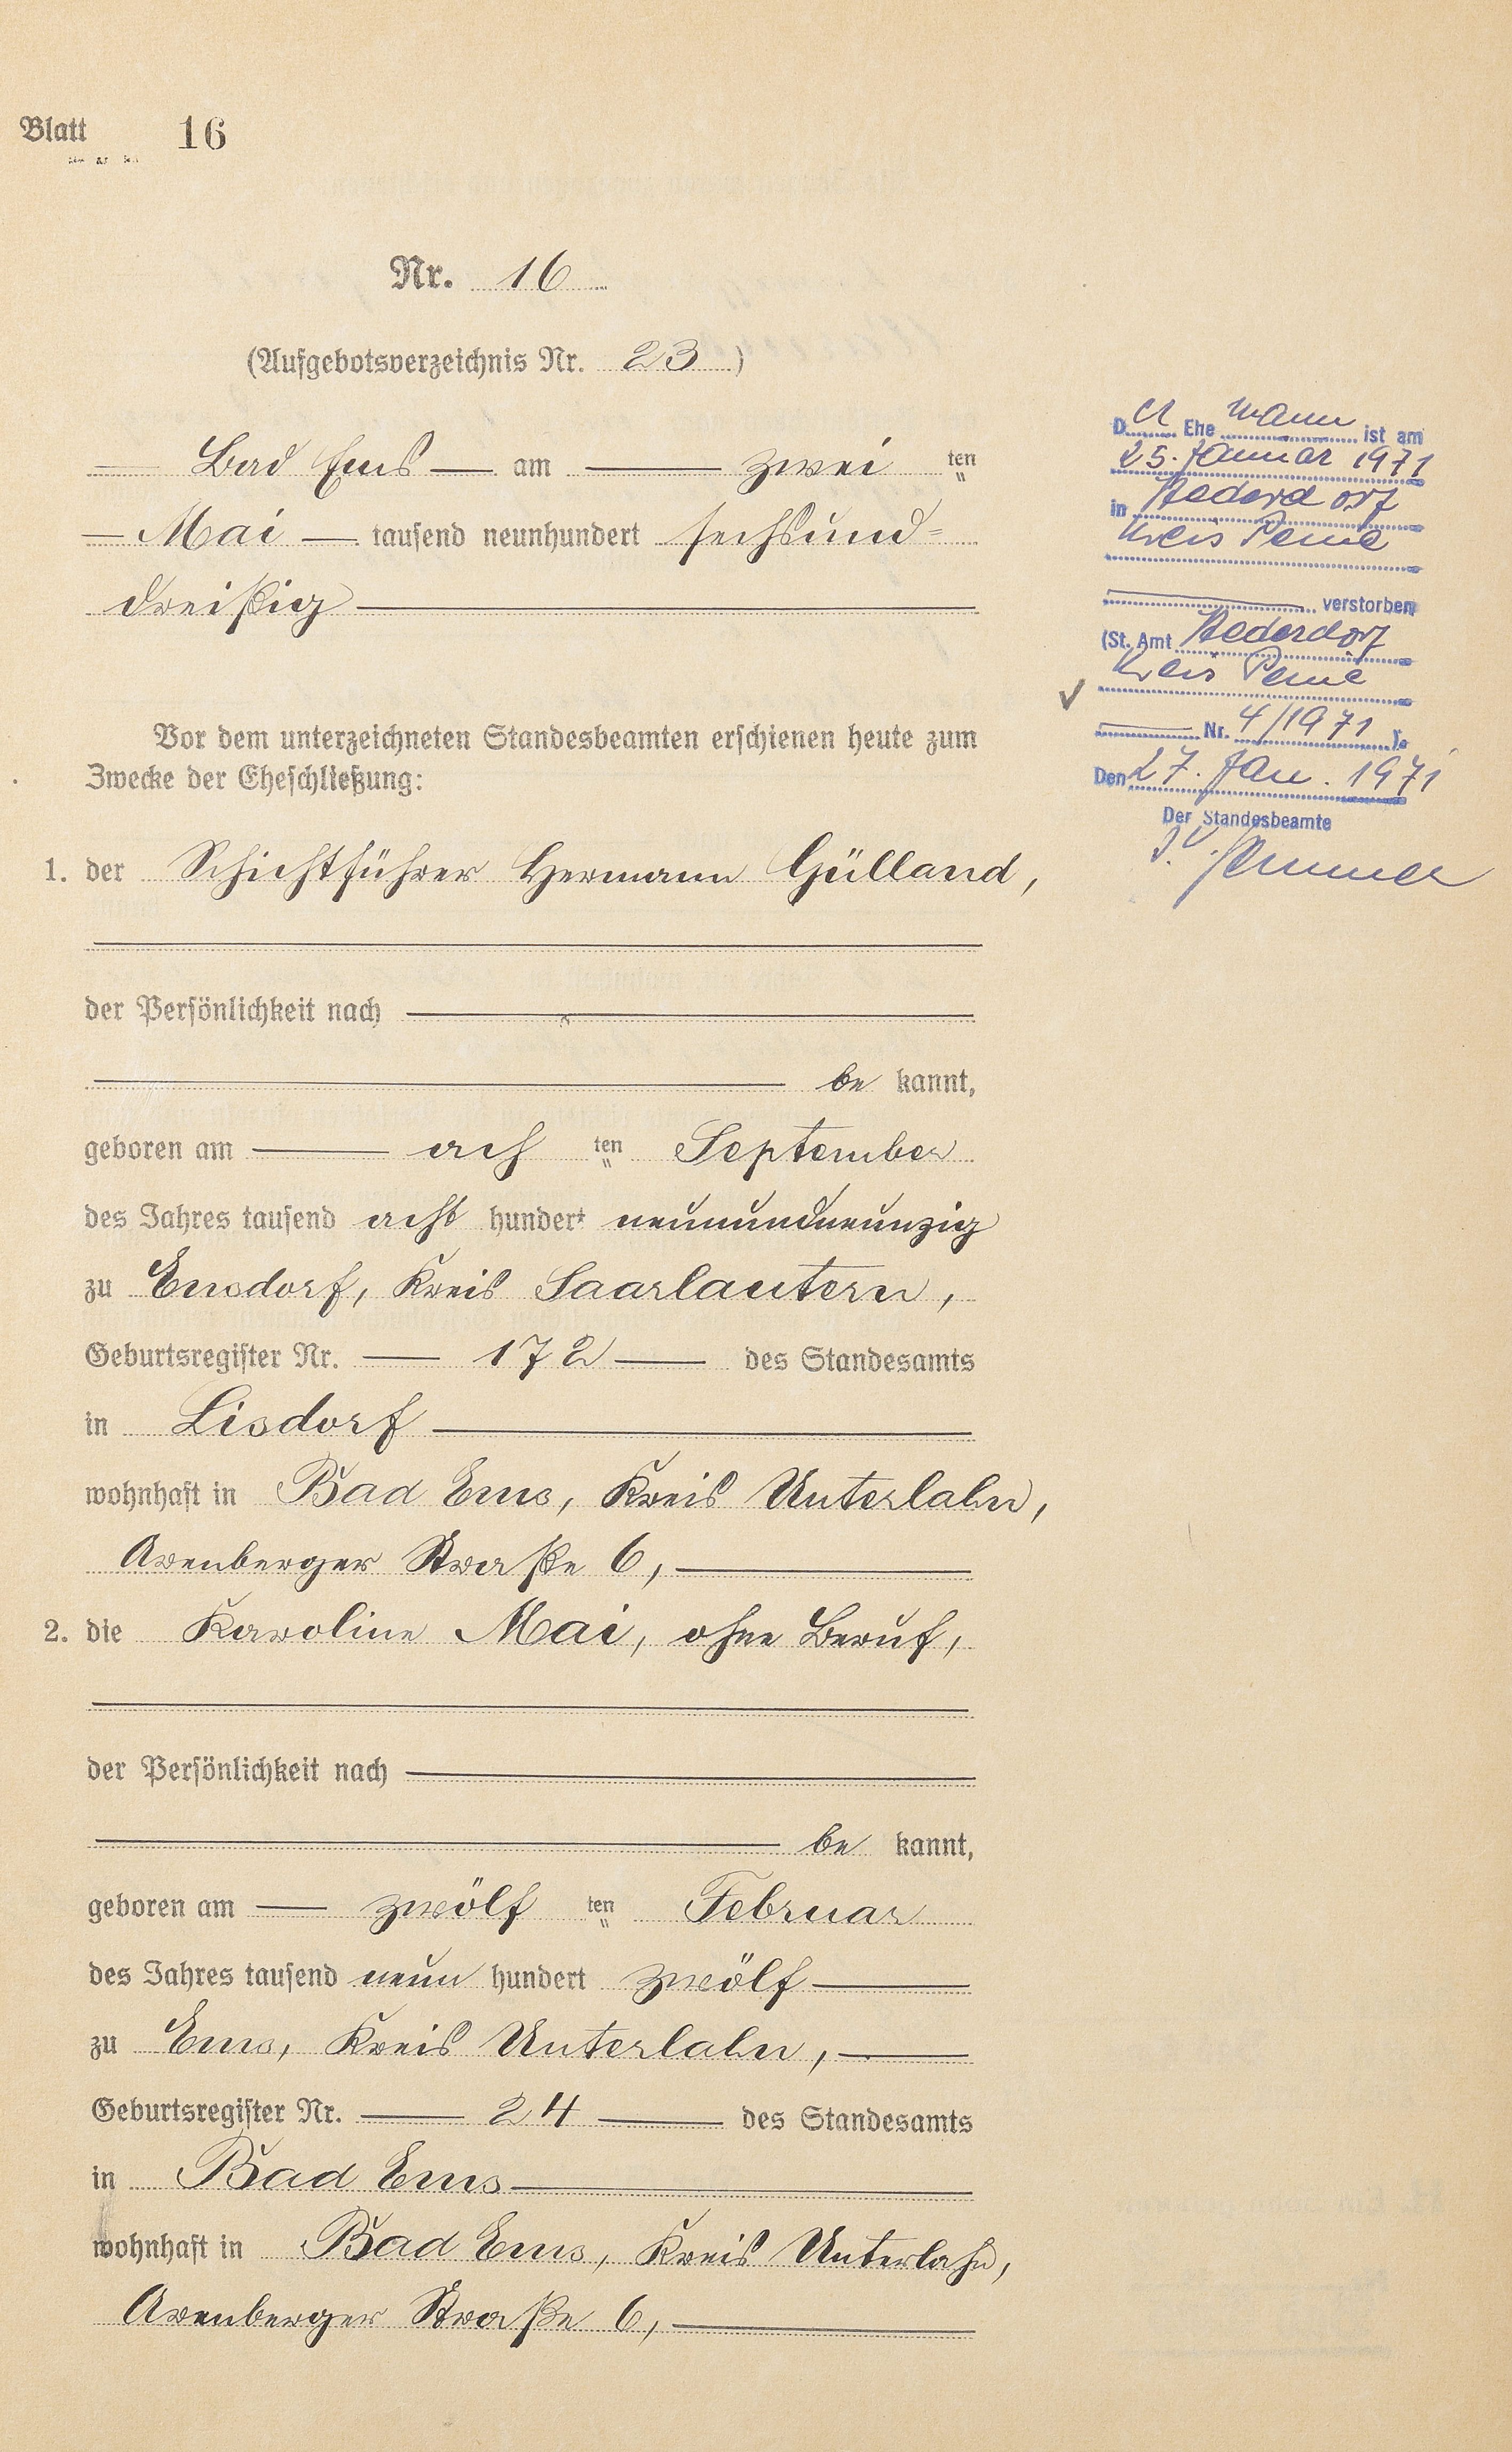 Blatt 16
Nr. 16
(Aufgebotsverzeichnis Nr. 23)
Bad Ems am zwei ten
Mai tausend neunhundert sechsund=
dreißig
Vor dem unterzeichneten Standesbeamten erschienen heute zum
Zwecke der Eheschließung:
1. der Schichtführer Hermann Gülland,
der Persönlichkeit nach
be kannt,
geboren am ach ten September
des Jahres tausend acht hundert neunundneunzig
zu Ensdorf, Kreis Saarlautern,
Geburtsregister Nr. 172 des Standesamts
in Lisdorf
wohnhaft in Bad Ems, Kreis Unterlahn,
Arenberger Straße 6,
2. die Karoline Mai, ohne Beruf,
der Persönlichkeit nach
be kannt,
geboren am zwölf ten Februar
des Jahres tausend neun hundert zwölf
zu Ems, Kreis Unterlahn,
Geburtsregister Nr. 24 des Standesamts
in Bad Ems
wohnhaft in Bad Ems, Kreis Unterlahn,
Arenberger Straße 6,
D er Ehe mann ist am
25. Januar 1971
in Stederdorf
Kreis Peine
verstorben
(St. Amt Stederdorf
Kreis Peine
Nr. 4/1971 ).
Den 27. Jan. 1971
Der Standesbeamte
I.V.